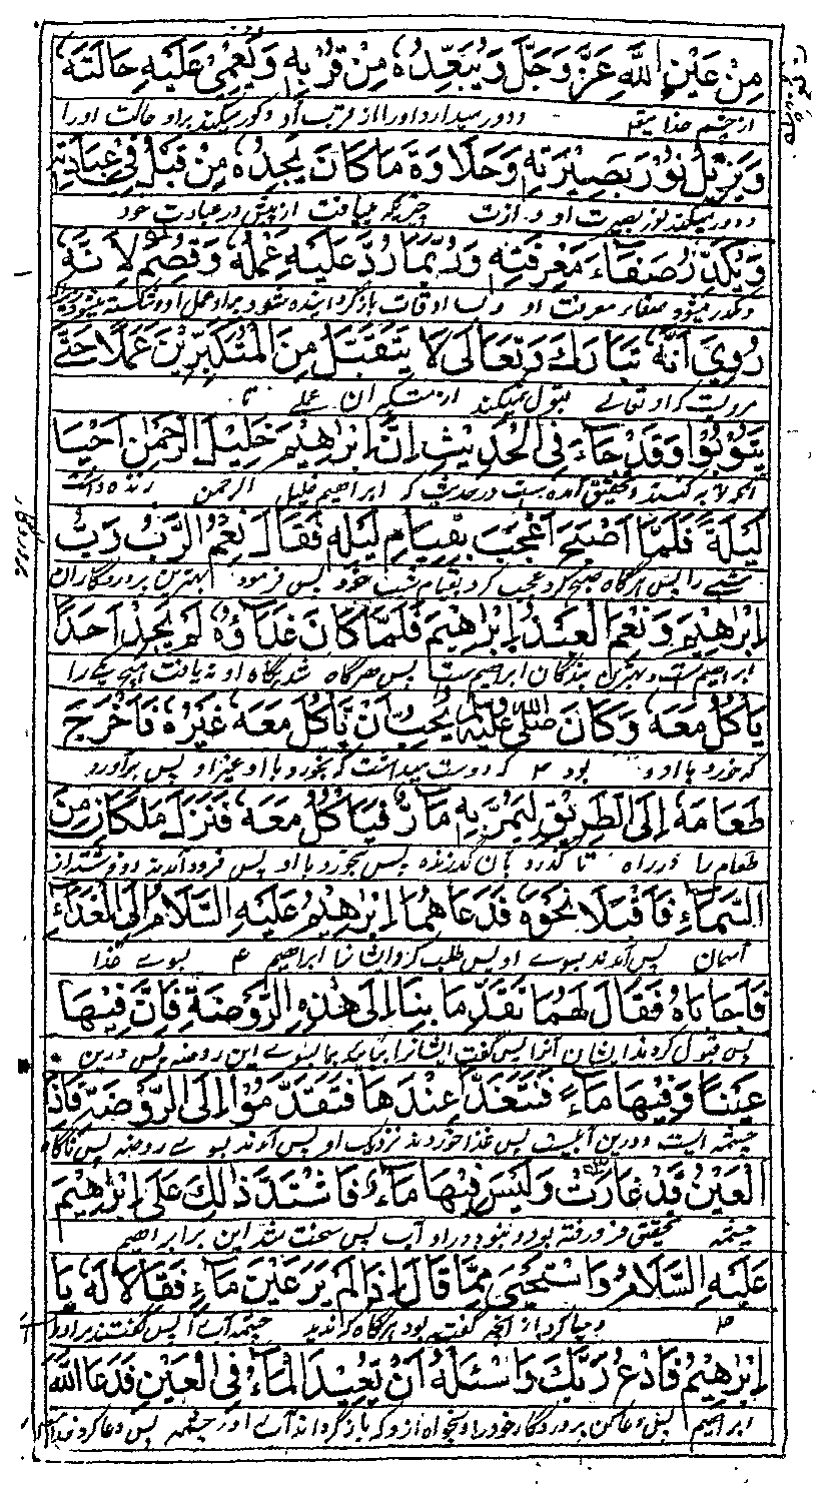 مِنْ عَيْنِ اللّٰهِ عَزَّ وَجَلَّ وَيُبَعِّدُهُ مِنْ قُرْبِهِ وَيُعْمِيْ عَلَيْهِ حَالَتَهُ
از چشم خدا و دور میدارد او را از قرب او و کور میکند براو حالت او را
وَيُزِيْلُ نُوْرَ بَصِيْرَتِهِ وَحَلَاوَةَ مَا كَانَ يَجِدُهُ مِنْ قَبْلُ فِيْ عِبَادَتِهِ
و دور میکند نور بصیرت او و لذت چیزیکه مییافت از پیش در عبادت خود
وَيُكَدِّرُ صَفَآءَ مَعْرِفَتِهِ وَرُبَّمَا رُدَّ عَلَيْهِ عَمَلُهُ وَقُصِمَ لِاَنَّهُ
و مکدر میشود صفاء معرفت او و بسا اوقات باز گردانیده شود براو عمل او و شکسته میشود
رُوِيَ اَنَّهُ تَبَارَكَ وَتَعَالٰى لَا يَتَقَبَّلُ مِنَ الْمُتَكَبِّرِيْنَ عَمَلًا حَتّٰى
مرویست که او تعالی قبول نمیکند از متکبران عملی تا
يَتُوْبُوْا وَقَدْ جَآءَ فِى الْحَدِيْثِ اِنَّ اِبْرٰهِيْمَ خَلِيْلَ الرَّحْمٰنِ اَحْيَا
آنکه توبه کنند و تحقیق آمده است در حدیث که ابراهیم خلیل الرحمن زنده داشت
لَيْلَةً فَلَمَّا اَصْبَحَ اَعْجَبَ بِقِيَامِ لَيْلِهِ فَقَالَ نِعْمَ الرَّبُّ رَبُّ
شبی را پس هرگاه صبح کرد عجب کرد بقیام شب خود پس فرمود بهترین پروردگاران
اِبْرٰهِيْمَ وَنِعْمَ الْعَبْدُ اِبْرٰهِيْمَ فَلَمَّا كَانَ غَدَاؤُهُ لَمْ يَجِدْ اَحَدًا
ابراهیم ست و بهترین بندگان ابراهیم ست پس هرگاه شد پگاه او نیافت هیچ یکے را
يَاْكُلُ مَعَهُ وَكَانَ صَلَّى اللّٰهُ عَلَيْهِ يُحِبُّ اَنْ يَاْكُلَ مَعَهُ غَيْرُهُ فَاَخْرَجَ
که خورد با او و بود که دوست میداشت که بخورد با او غیر او پس برآورد
طَعَامَهُ اِلَى الطَّرِيْقِ لِيَمُرَّ بِهِ مَآرٌّ فَيَاْكُلَ مَعَهُ فَنَزَلَ مَلَكَانِ مِنَ
طعام را در راه تا گذرد بآن گذرنده پس بخورد با او پس فرود آمدند دو فرشته از
السَّمَآءِ فَاَقْبَلَا نَحْوَهُ فَدَعَاهُمَا اِبْرٰهِيْمُ عَلَيْهِ السَّلَامُ اِلَى الْغَدَآءِ
آسمان پس آمدند بسوے او پس طلب کرد ایشانرا ابراهیم ع بسوے غذا
فَاَجَابَاهُ فَقَالَ لَهُمَا تَقَدَّمَا بِنَا اِلٰى هٰذِهِ الرَّوْضَةِ فَاِنَّ فِيْهَا
پس قبول کردند ایشان آنرا پس گفت ایشانرا بیائید بما بسوے این روضه پس درین
عَيْنًا وَفِيْهَا مَآءٌ فَنَتَغَدّٰى عِنْدَهَا فَتَقَدَّمُوْا اِلَى الرَّوْضَةِ فَاِذَا
چشمه ایست و درین آبیست پس غذا خوردند نزدیک او پس آمدند بسوے روضه پس ناگاه
الْعَيْنُ قَدْ غَارَتْ وَلَيْسَ فِيْهَا مَآءٌ فَاشْتَدَّ ذٰلِكَ عَلٰى اِبْرٰهِيْمَ
چشمه تحقیق فرو رفته بود و نبود دراو آب پس سخت شد این بر ابراهیم
عَلَيْهِ السَّلَامُ وَاسْتَحْيٰى مِمَّا قَالَ اِذَا لَمْ يَرَ عَيْنَ مَآءٍ فَقَالَا لَهُ يَا
و حیا کرد از آنچه گفته بود هرگاه که ندید چشمه آب را پس گفتند براو
اِبْرٰهِيْمُ فَادْعُ رَبَّكَ وَاسْئَلْهُ اَنْ يُّعِيْدَ الْمَآءَ فِى الْعَيْنِ فَدَعَا اللّٰهَ
ابراهیم پس دعا کن پروردگار خود را و بخواه ازو که باز گرداند آب را در چشمه پس دعا کرد خدا